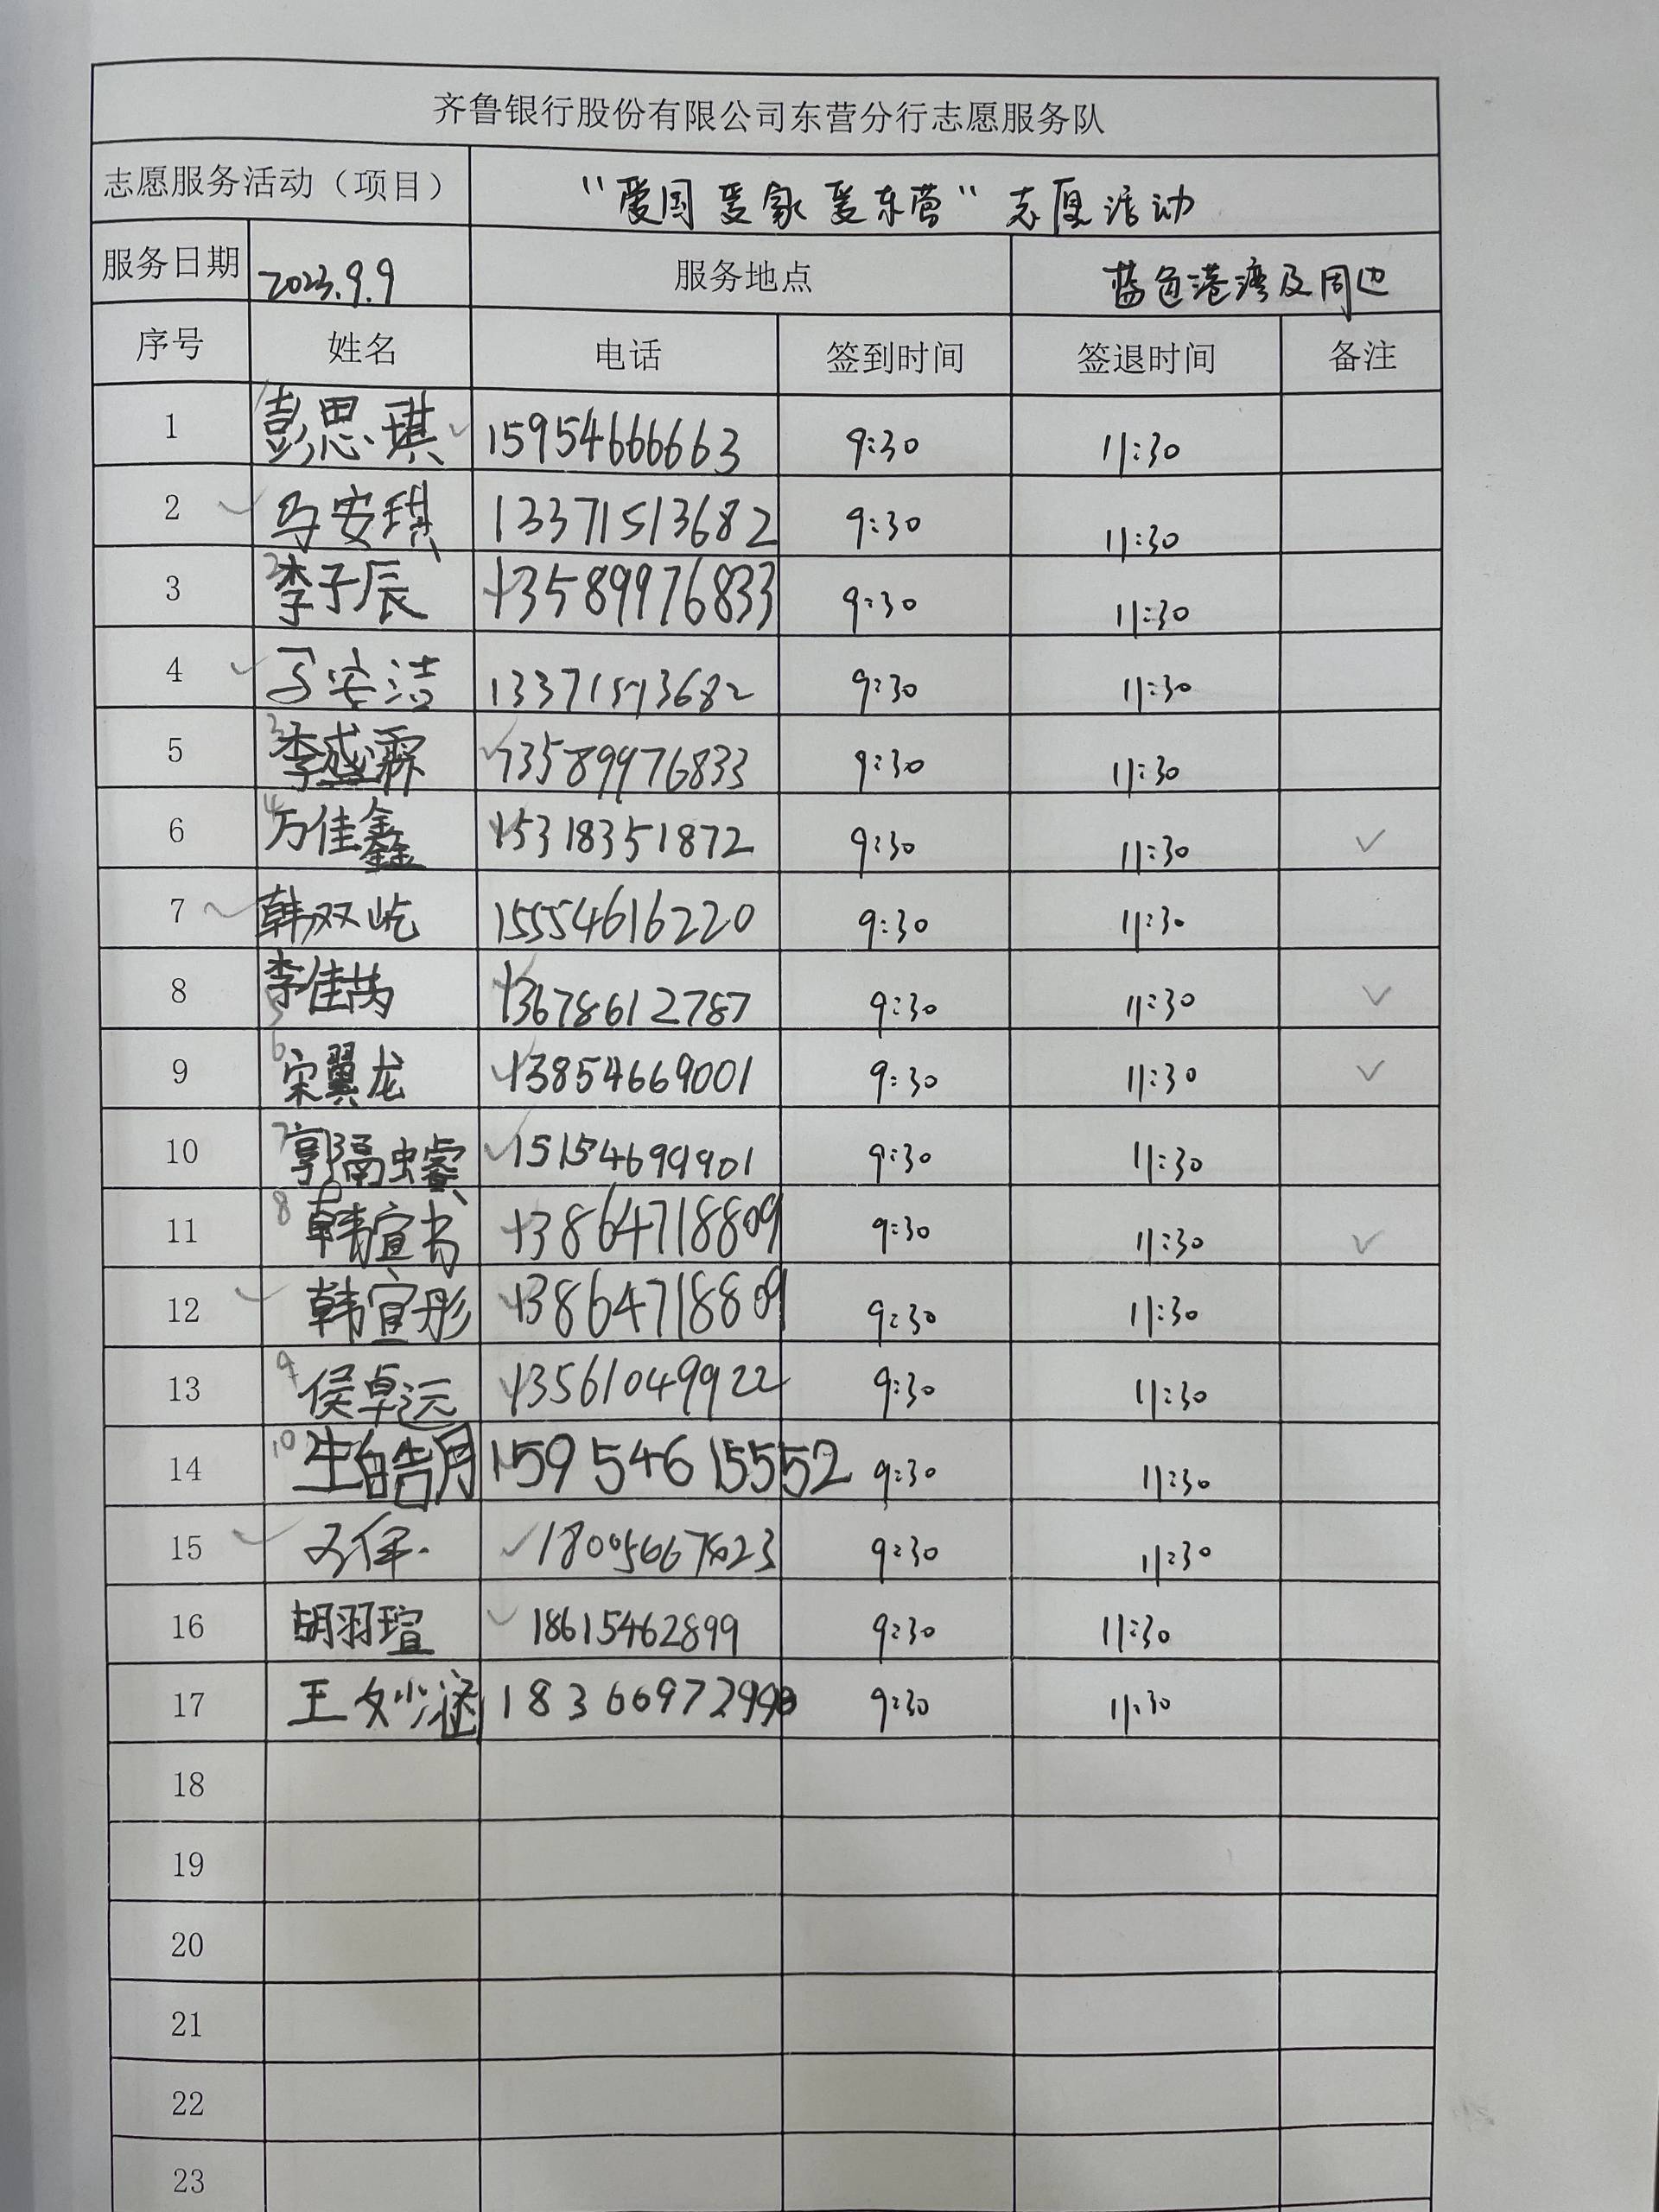 齐鲁银行股份有限公司东营分行志愿服务队
志愿服务活动（项目） “爱国 爱家 爱东营” 志愿活动
服务日期 2023.9.9 服务地点 蓝色港湾及周边
序号 姓名 电话 签到时间 签退时间 备注
1 彭思琪 ✓ 15954666663 9:30 11:30
2 ✓ 马安琪 13371513682 9:30 11:30
3 2 李子辰 ✓ 13589976833 9:30 11:30
4 ✓ 马安洁 13371513682 9:30 11:30
5 3 李盛霖 ✓ 13589976833 9:30 11:30
6 4 万佳鑫 ✓ 15318351872 9:30 11:30 ✓
7 ✓ 韩双屹 15554616220 9:30 11:30
8 5 李佳芮 ✓ 13678612787 9:30 11:30 ✓
9 6 宋翼龙 ✓ 13854669001 9:30 11:30 ✓
10 7 郭融睿 ✓ 15154699901 9:30 11:30
11 8 韩宣书 ✓ 13864718809 9:30 11:30 ✓
12 ✓ 韩宣彤 ✓ 13864718809 9:30 11:30
13 9 侯卓远 ✓ 13561049922 9:30 11:30
14 10 生皓月 15954615552 9:30 11:30
15 ✓ ✓ 9:30 11:30
16 胡羽瑄 ✓ 18615462899 9:30 11:30
17 王妙涵 9:30 11:30
18
19
20
21
22
23